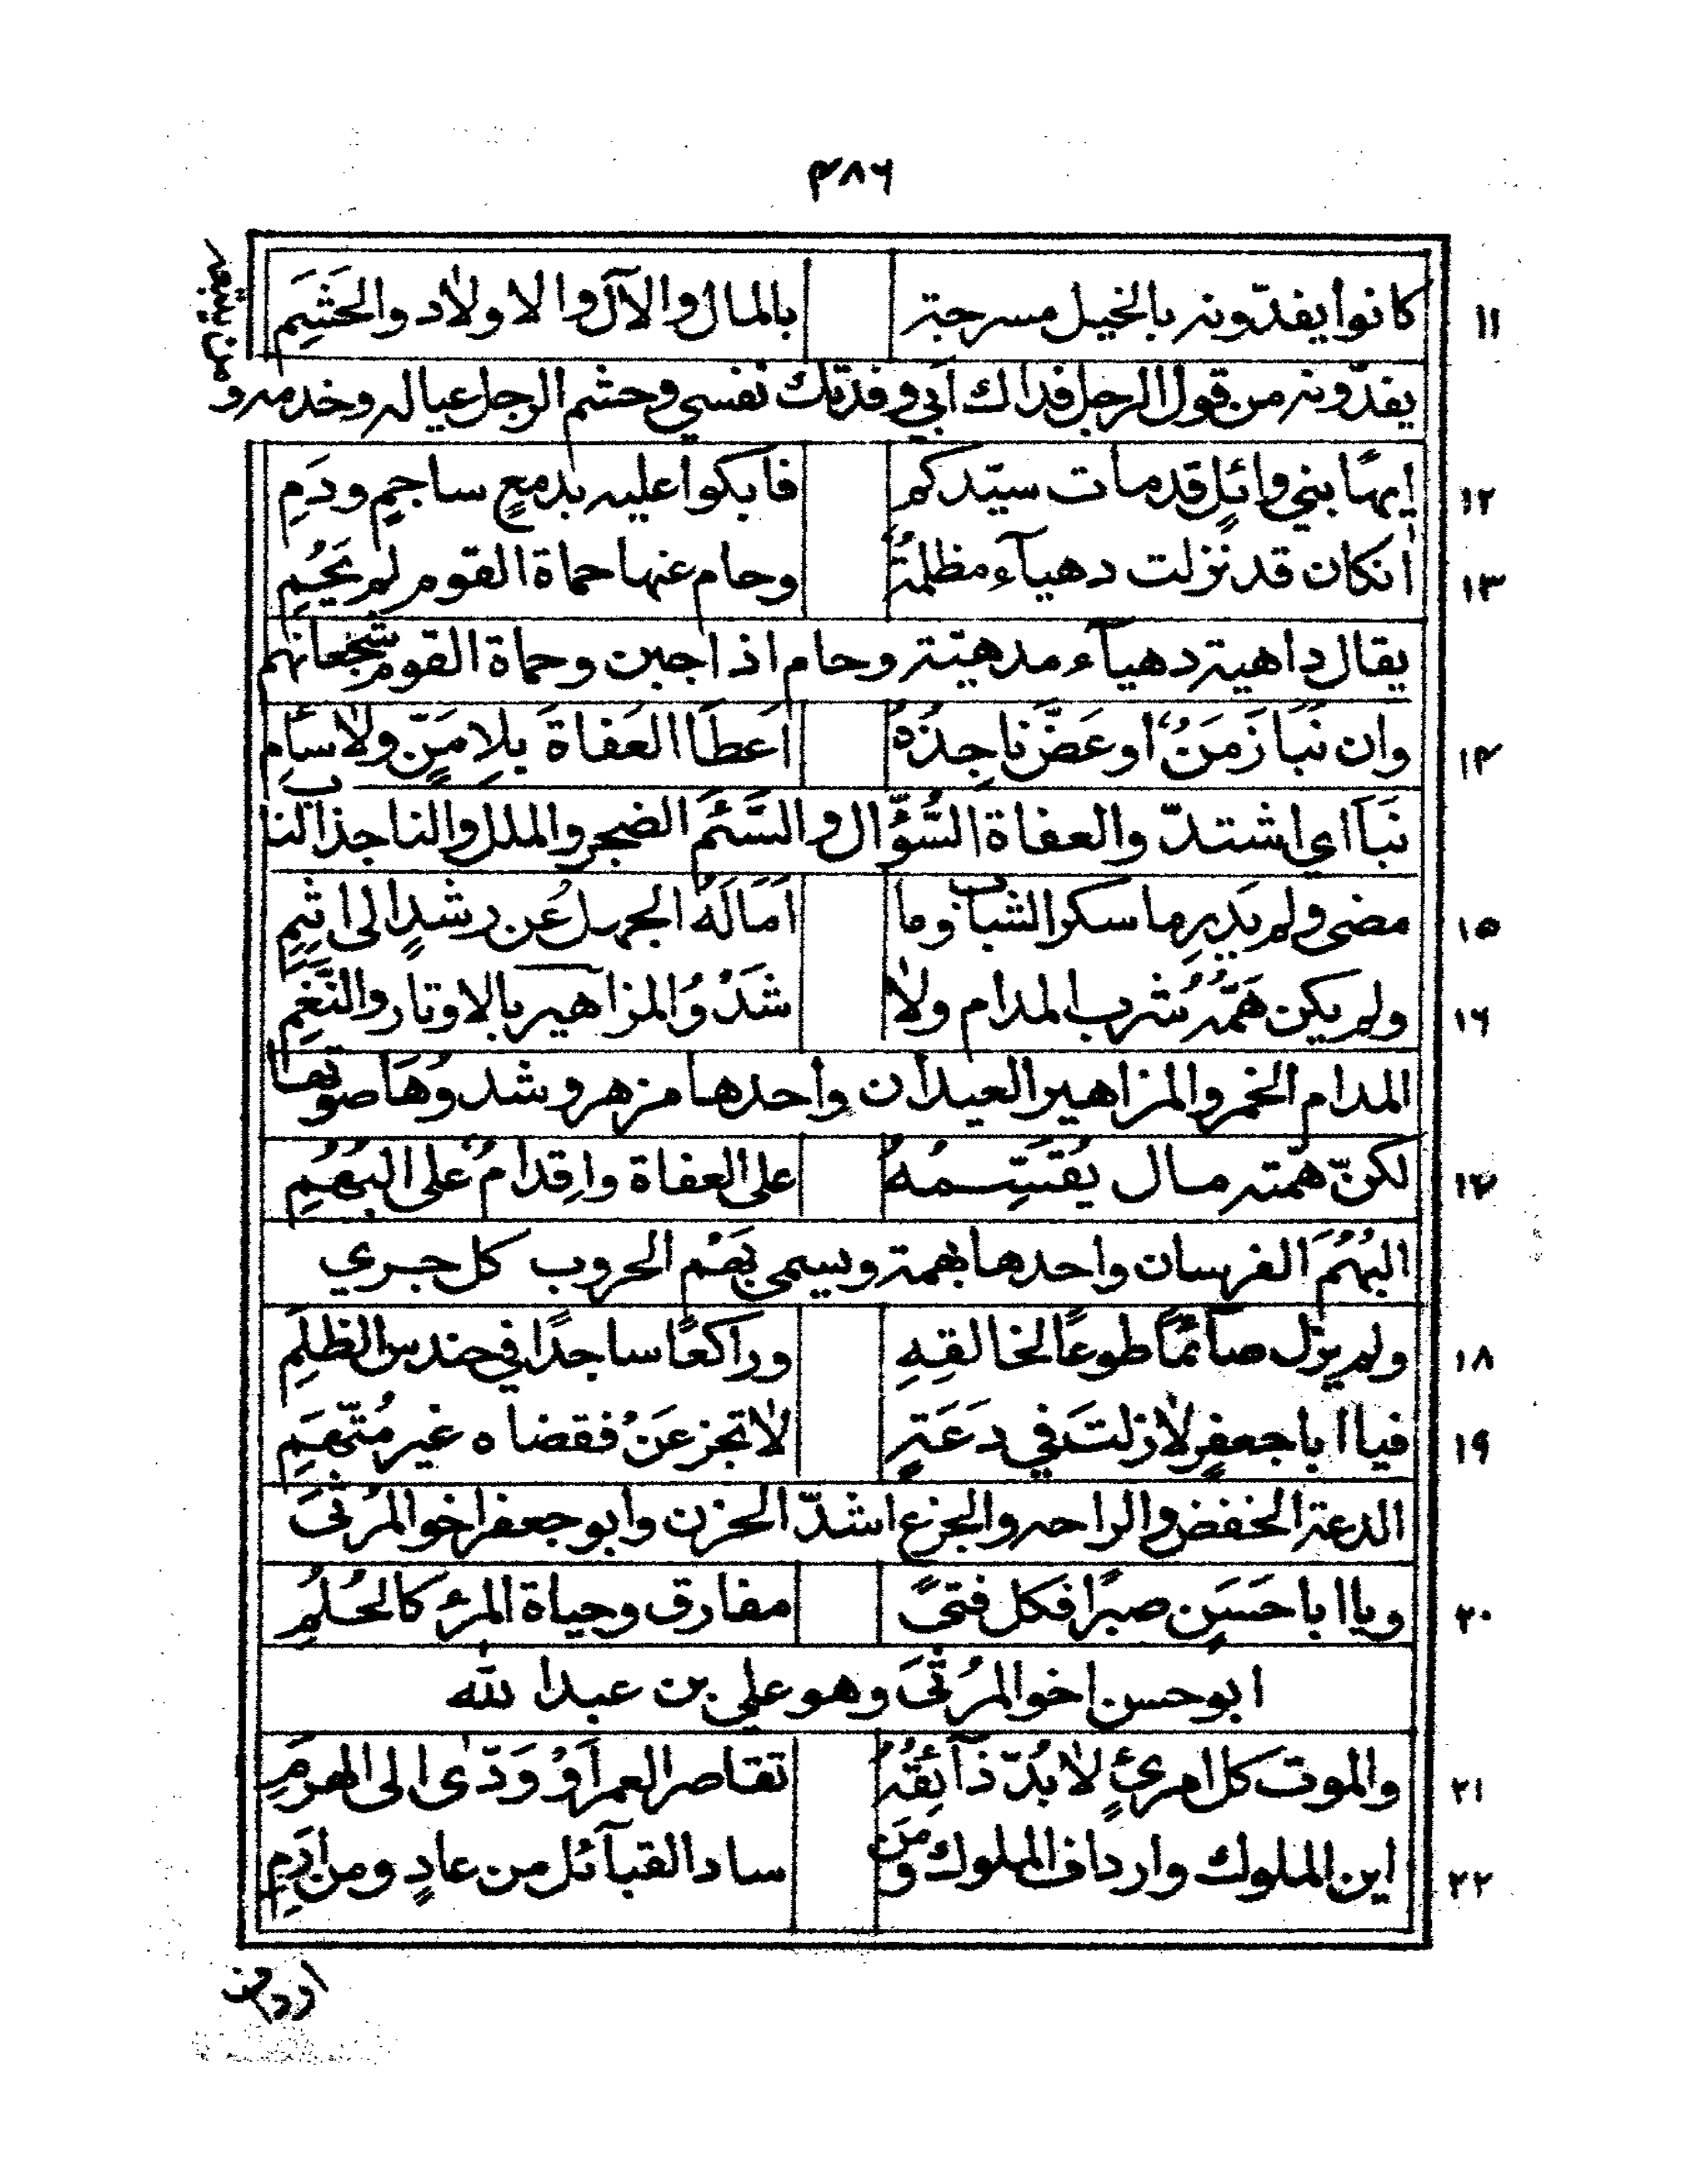 ٤٨٦
١١ كانوا يفدّونه بالخيل مسرجة بالمال والآل والاولاد والحَشَمِ
يفدّونه من قول الرجل فداك ابي وفدتك نفسي وحشم الرجل عياله وخدمه و
من يتبعه
١٢ إيهًا بني وائلٍ قد مات سيّدكم فابكوا عليه بدمعٍ ساجمٍ ودَمِ
١٣ انكان قد نزلت دهيآء مظلمةٌ وحام عنها حماة القوم لم يَحُمِ
يقال داهية دهيآء مدهيّة وحام اذا جبن وحماة القوم شجعانهم
١٤ وان نَبَا زَمَنٌ او عَضَّ ناجِذُهُ اَعطَا العَفاةَ بِلا مَنٍّ ولا سأَمِ
نَبَا اي اشتدّ والعفاة السُّؤّال والسَّئَم الضجر والملل والناجذ الناب
١٥ مضى ولم يَدرِ ما سكر الشباب وما اَمَالَهُ الجهل عن رشدٍ الى اثِمِ
١٦ ولم يكن هَمُّهُ شرب المدام ولا شَدْوُ المزاهير بالاوتار والنَّغَمِ
المدام الخمر والمزاهير العيدان واحدها مزهر وشدوُهَا صوتها
١٧ لكنّ همّته مال يُقَسِّمُهُ على العفاة واِقدامٌ على البُهَمِ
البُهَمُ الفرسان واحدها بهمة ويسمى بَهَمْ الحروب كل جري
١٨ ولم يزل صآئمًا طوعًا لخالقِهِ وراكعًا ساجدًا في حندس الظلَمِ
١٩ فيا ابا جعفرٍ لا زلتَ في دَعَةٍ لا تجزعَنْ فقضاه غير مُتّهَمِ
الدعة الخفض والراحه والجزع اشدّ الحزن وابو جعفر اخو المُرثَى
٢٠ ويا ابا حَسَنٍ صبرًا فكل فتىً مفارق وحياة المرء كالحُلُمِ
ابو حسن اخو المُرثَى وهو علي بن عبد الله
٢١ والموت كل امرئٍ لا بُدّ ذآئِقُهُ تقاصر العمر اَوْ وَدّى الى الهرَمِ
٢٢ اين الملوك وارداف الملوك ومن ساد القبآئل من عادٍ ومن اِرَمِ
ارداف